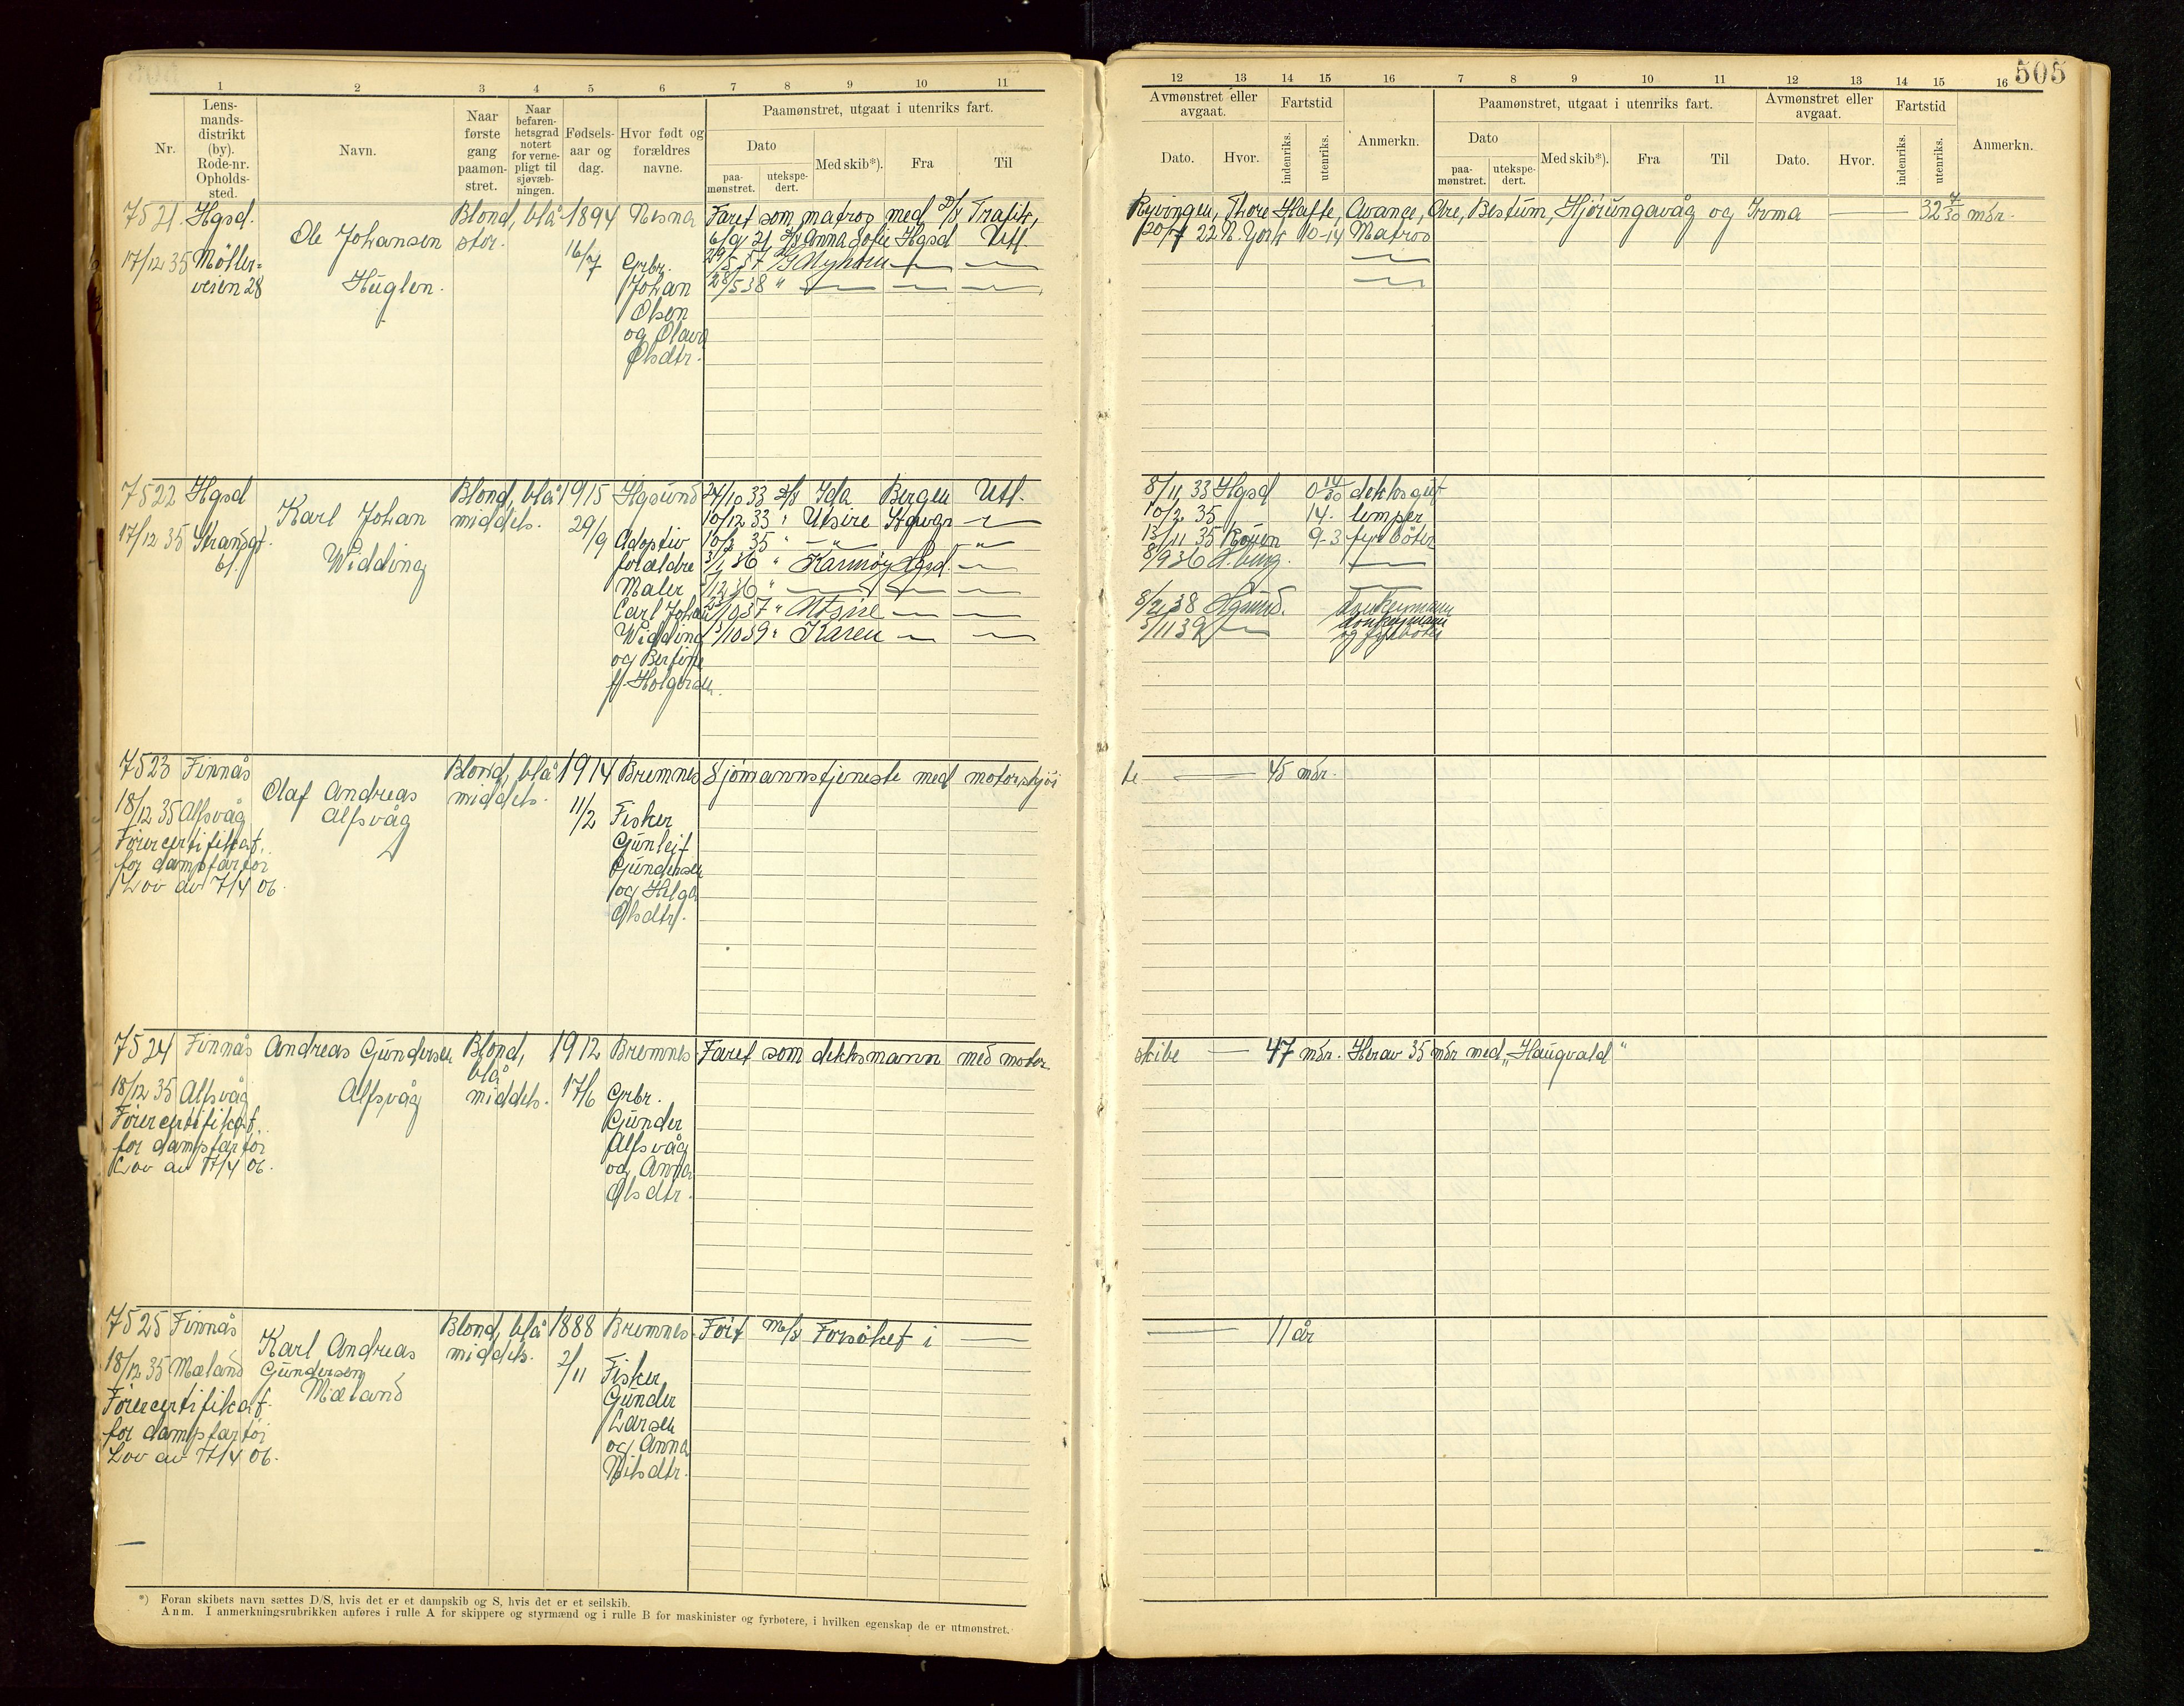 505
1 2 3 4 5 6 7 8 9 10 11
12 13 14 15 16 7 8 9 10 11 12 13 14 15 16
Nr.
Lens-
mands-
distrikt
(by).
Rode-nr.
Opholds-
sted.
Navn.
Naar
første
gang
paamøn-
stret.
Naar
befaren-
hetsgrad
notert
for verne-
pligt til
sjøvæb-
ningen.
Fødsels-
aar og
dag.
Hvor født og
forældres
navne.
Paamønstret, utgaat i utenriks fart.
Dato
paa-
mønstret.
utekspe-
dert.
Med skib*).
Fra
Til
Avmønstret eller
avgaat.
Dato.
Hvor.
Fartstid
indenriks.
utenriks.
Anmerkn.
Paamønstret, utgaat i utenriks fart.
Dato
paa-
mønstret.
utekspe-
dert.
Med skib*).
Fra
Til
Avmønstret eller
avgaat.
Dato.
Hvor.
Fartstid
indenriks.
utenriks.
Anmerkn.
7521. Hgsd.
17/12 35 Möller-
veien 28
Ole Johansen
Huglen.
Blond, blå
stor.
1894
16/7
Nesna
Grbr.
Johan
Olsen
og Olava
Olsdtr.
Faret som matros med D/S Trafik,
6/9 21 D/S Anna Sofie Hgsd Utl.
28/5 38 "
Ryvingen, Thore Hafte, Avance, Are, Bestum, Hjörungavåg og Irma — 32 4/30 mdr.
20/7 22 N. York 10-14 Matros
7522 Hgsd
17/12 35 Strandgt.
61.
Karl Johan
Widding
Blond, blå
middels.
1915
29/9
Hgsund
Adoptiv
forældre
Maler
Carl Johan
Widding
og Bertine
f. Holgersen.
24/10 33 D/S Ida Bergen Utl.
10/12 33 " Utsire Stavgr —
10/2 35 " — " — "
3/1 36 " Karmøy Hgsd. —
/12 36 " — — —
/10 37 " Utsire — —
13/10 39 " Karen — —
8/11 33 Hgsd 0 14/30 dekksgut
10/2 35 14. lemper
13/11 35 Rouen 9-3 fyrböter
8/9 36 —
8/2 38 Hgsund. donkeymann
3/11 39 — donkeymann
og fyrböter
7523 Finnås
18/12 35 Alfsvåg
Förercertifikat
for dampfartöi
Lov av 7/4 06.
Olaf Andreas
Alfsvåg
Blond, blå
middels.
1914
11/2
Bremnes
Fisker
Gunleif
Gundersen
og Helga
Olsdtr.
Sjömannstjeneste med motorskjöi
te — 45 mdr.
7524 Finnås
18/12 35 Alfsvåg
Förercertifikat
for dampfartöi
Lov av 7/4 06.
Andreas Gundersen
Alfsvåg
Blond,
blå
middels.
1912
17/6
Bremnes
Grbr.
Gunder
Alfsvåg
og Anna
Olsdtr.
Faret som dekksmann med motor
skibe — 47 mdr. Herav 35 mdr med „Haugvald“
7525 Finnås
18/12 35 Mæland
Förercertifikat
for dampfartöi
Lov av 7/4 06.
Karl Andreas
Gundersen
Mæland
Blond, blå
middels.
1888
2/11
Bremnes
Fisker
Gunder
Larsen
og Anna
Nilsdtr.
Fört M/S Forsöket i —
— 11 år
*) Foran skibets navn sættes D/S, hvis det er et dampskib og S, hvis det er et seilskib.
Anm. I anmerkningsrubrikken anføres i rulle A for skippere og styrmænd og i rulle B for maskinister og fyrbøtere, i hvilken egenskap de er utmønstret.